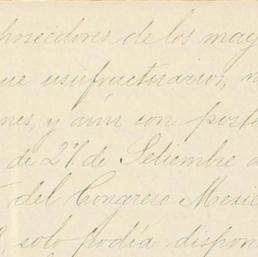 poseedores de los may
que usufructuarios, n
nes, y aún con poste
de 27 de Setiembre d
del Congreso Mexic
solo podía dispon